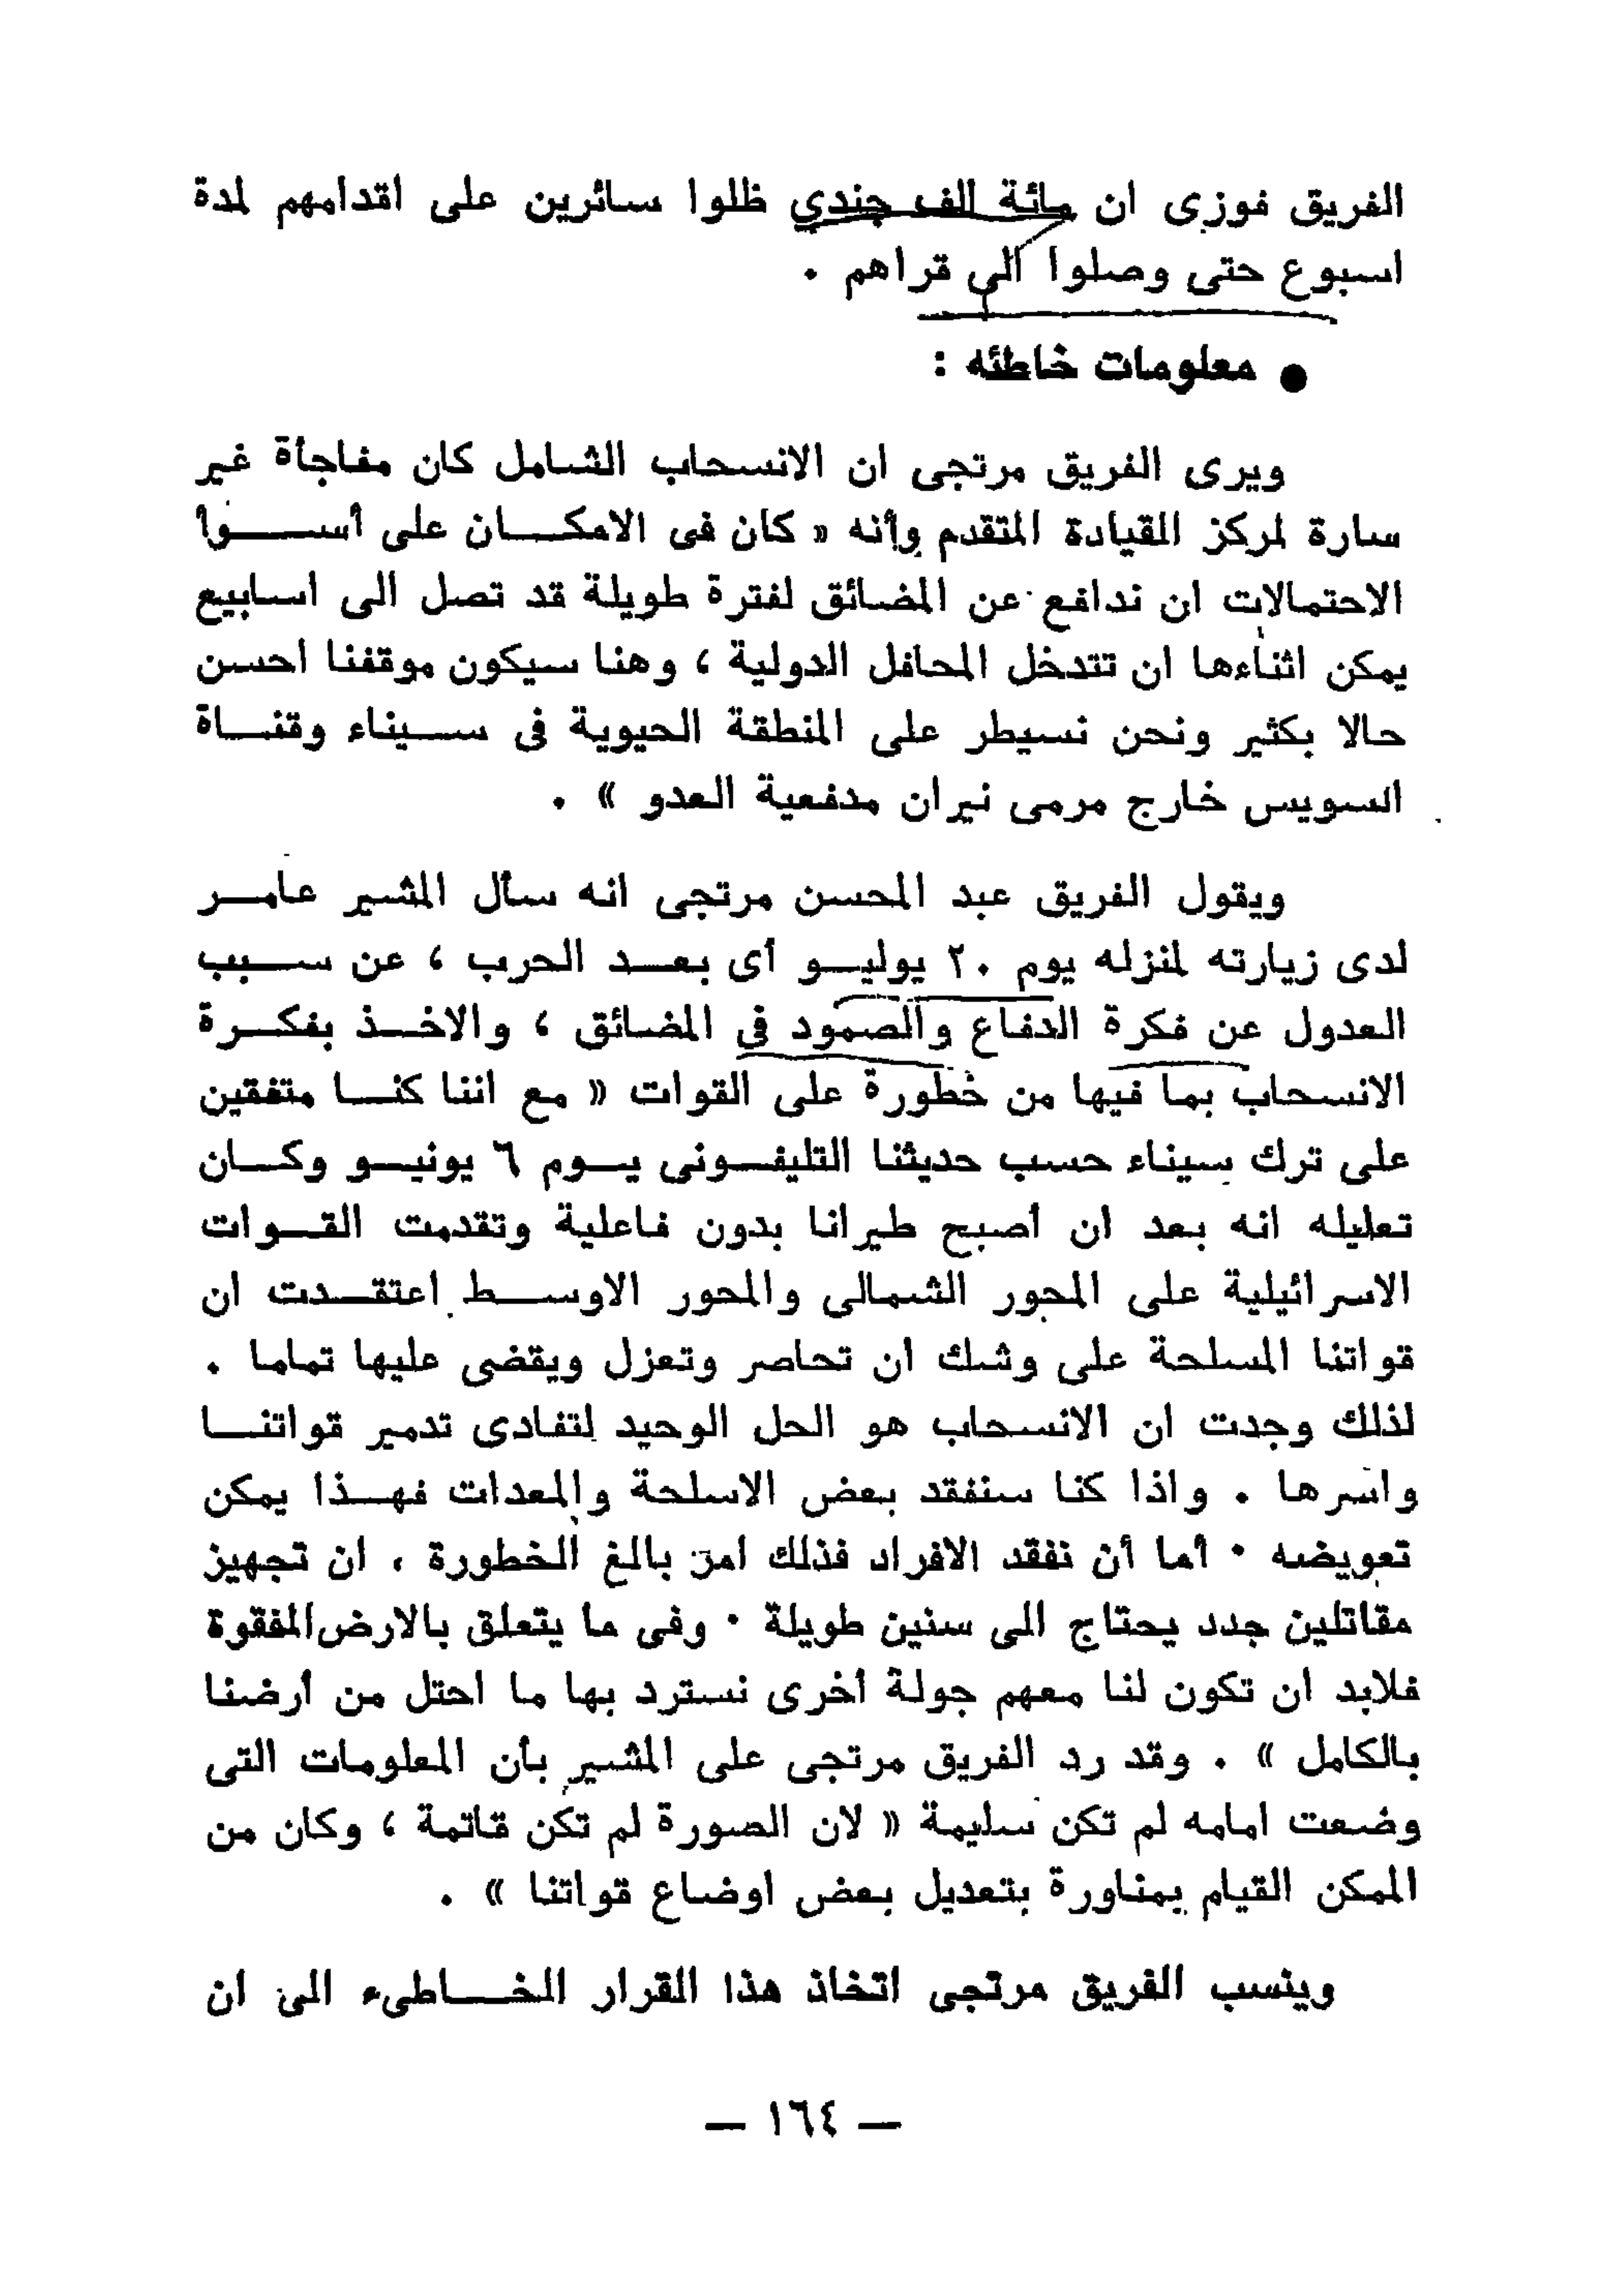 الفريق فوزى ان مائة الف جندي ظلوا سائرين على اقدامهم لمدة
اسبوع حتى وصلوا الى قراهم .
● معلومات خاطئه :
ويرى الفريق مرتجى ان الانسحاب الشامل كان مفاجأة غير
سارة لمركز القيادة المتقدم وأنه « كان فى الامكان على أسوأ
الاحتمالات ان ندافع عن المضائق لفترة طويلة قد تصل الى اسابيع
يمكن اثناءها ان تتدخل المحافل الدولية ، وهنا سيكون موقفنا احسن
حالا بكثير ونحن نسيطر على المنطقة الحيوية فى سيناء وقناة
السويس خارج مرمى نيران مدفعية العدو » .
ويقول الفريق عبد المحسن مرتجى انه سأل المشير عامر
لدى زيارته لمنزله يوم ٢٠ يوليو أى بعد الحرب ، عن سبب
العدول عن فكرة الدفاع والصمود في المضائق ، والاخذ بفكرة
الانسحاب بما فيها من خطورة على القوات « مع اننا كنا متفقين
على ترك سيناء حسب حديثنا التليفونى يوم ٦ يونيو وكان
تعليله انه بعد ان أصبح طيرانا بدون فاعلية وتقدمت القوات
الاسرائيلية على المحور الشمالى والمحور الاوسط اعتقدت ان
قواتنا المسلحة على وشك ان تحاصر وتعزل ويقضى عليها تماما .
لذلك وجدت ان الانسحاب هو الحل الوحيد لتفادى تدمير قواتنا
واسرها . واذا كنا سنفقد بعض الاسلحة والمعدات فهذا يمكن
تعويضه . أما أن نفقد الافراد فذلك امر بالغ الخطورة ، ان تجهيز
مقاتلين جدد يحتاج الى سنين طويلة . وفى ما يتعلق بالارض المفقوة
فلابد ان تكون لنا معهم جولة أخرى نسترد بها ما احتل من أرضنا
بالكامل » . وقد رد الفريق مرتجى على المشير بأن المعلومات التى
وضعت امامه لم تكن سليمة « لان الصورة لم تكن قاتمة ، وكان من
الممكن القيام بمناورة بتعديل بعض اوضاع قواتنا » .
وينسب الفريق مرتجى اتخاذ هذا القرار الخاطىء الى ان
— ١٦٤ —